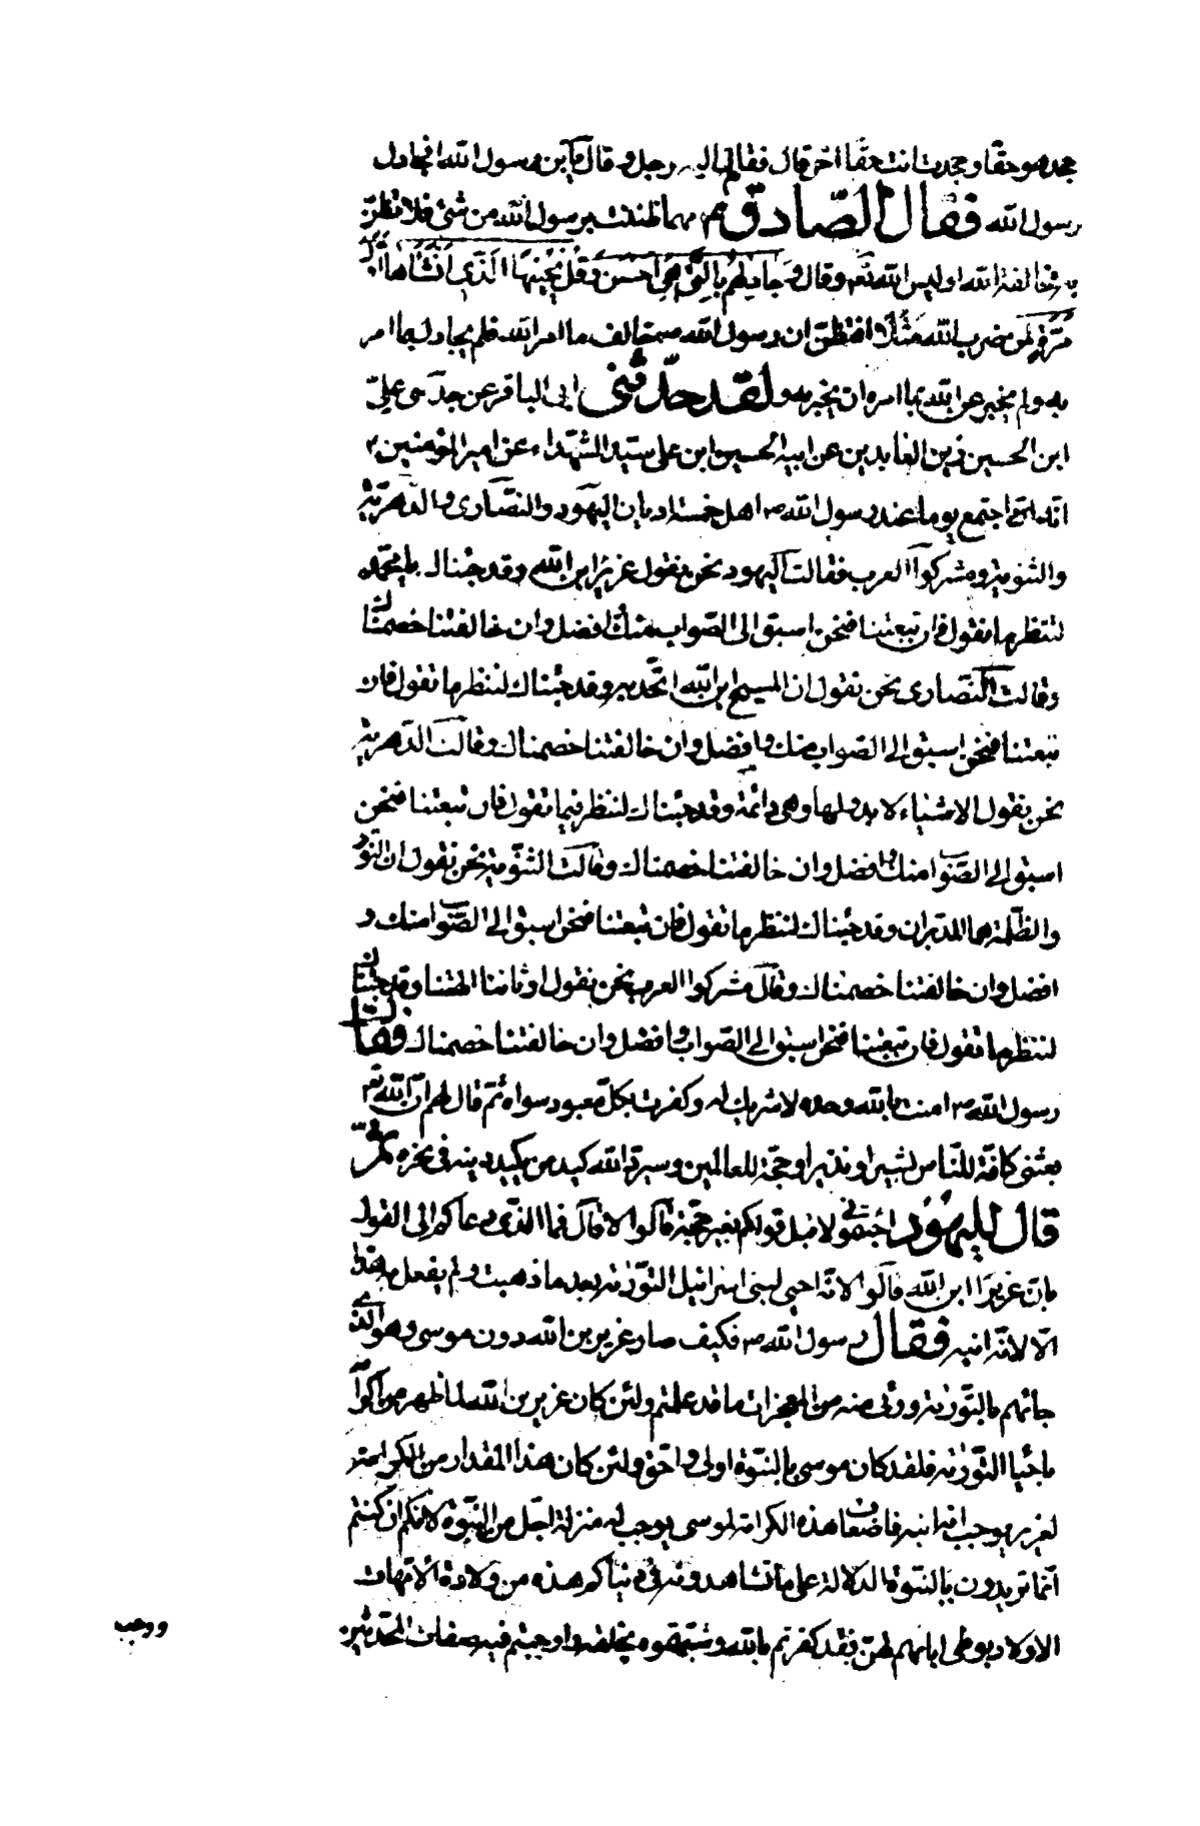 جحد هو حقا وجحدت انت حقا اخر قال فقام اليه رجل وقال يا بن رسول الله افجادل
رسول الله فقال الصادق ع مهما ظننت برسول الله من شئ فلا تظن
به مخالفة الله او ليس الله تعالى قال وجادلهم بالتي هي احسن وقل يحييها الذي انشاها اول
مرة لمن ضرب الله مثلا افتظن ان رسول الله ص خالف ما امر الله فلم يجادل بما امر
به ولم يخبر عن الله بما امره ان يخبر به ولقد حدثني ابي الباقر عن جدي علي
ابن الحسين زين العابدين عن ابيه الحسين ابن علي سيد الشهداء عن امير المؤمنين
انه اجتمع يوما عند رسول الله ص اهل خمسة اديان اليهود والنصارى والدهرية
والثنوية ومشركوا العرب فقالت اليهود نحن نقول عزير ابن الله وقد جئناك يا محمد
لننظر ما تقول فان تبعتنا فنحن اسبق الى الصواب منك وافضل وان خالفتنا خصمناك
وقالت النصارى نحن نقول ان المسيح ابن الله اتحد به وقد جئناك لننظر ما تقول فان
تبعتنا فنحن اسبق الى الصواب منك وافضل وان خالفتنا خصمناك وقالت الدهرية
نحن نقول الاشياء لا بدو لها وهي دائمة وقد جئناك لننظر فيما تقول فان تبعتنا فنحن
اسبق الى الصواب منك وافضل وان خالفتنا خصمناك وقالت الثنوية نحن نقول ان النور
والظلمة هما المدبران وقد جئناك لننظر ما تقول فان تبعتنا فنحن اسبق الى الصواب منك و
افضل وان خالفتنا خصمناك وقال مشركوا العرب نحن نقول اوثاننا الهتنا وقد جئناك
لننظر ما تقول فان تبعتنا فنحن اسبق الى الصواب وافضل وان خالفتنا خصمناك فقال
رسول الله ص امنت بالله وحده لا شريك له وكفرت بكل معبود سواه ثم قال لهم ان الله تعالى
بعثني كافة للناس بشيرا ونذيرا وحجة للعالمين وسيرد الله كيد من يكيد دينه في نحره ثم
قال لليهود اجئتموني لاقبل قولكم بغير حجة قالوا لا قال فما الذي دعاكم الى القول
بان عزيرا ابن الله قالوا لانه احيى لبني اسرائيل التورية بعد ما ذهبت ولم يفعل بها هذا
الا لانه ابنه فقال رسول الله ص فكيف صار عزير بن الله دون موسى وهو الذي
جائهم بالتورية وروئي منه من المعجزات ما قد علمتم ولئن كان عزير بن الله لما ظهر من اكرامه
باحياء التورية فلقد كان موسى بالبنوة اولى واحق ولئن كان هذا المقدار من اكرامه
لعزير يوجب انه ابنه فاضعاف هذه الكرامة لموسى يوجب له منزلة اجل من البنوة لانكم ان كنتم
انما تريدون بالبنوة الدلالة على ما تشاهدونه في دنياكم هذه من ولادة الامهات
الاولاد بوطى ابائهم لهن فقد كفرتم بالله وشبهتموه بخلقه واوجبتم فيه صفات المحدثين
ووجب